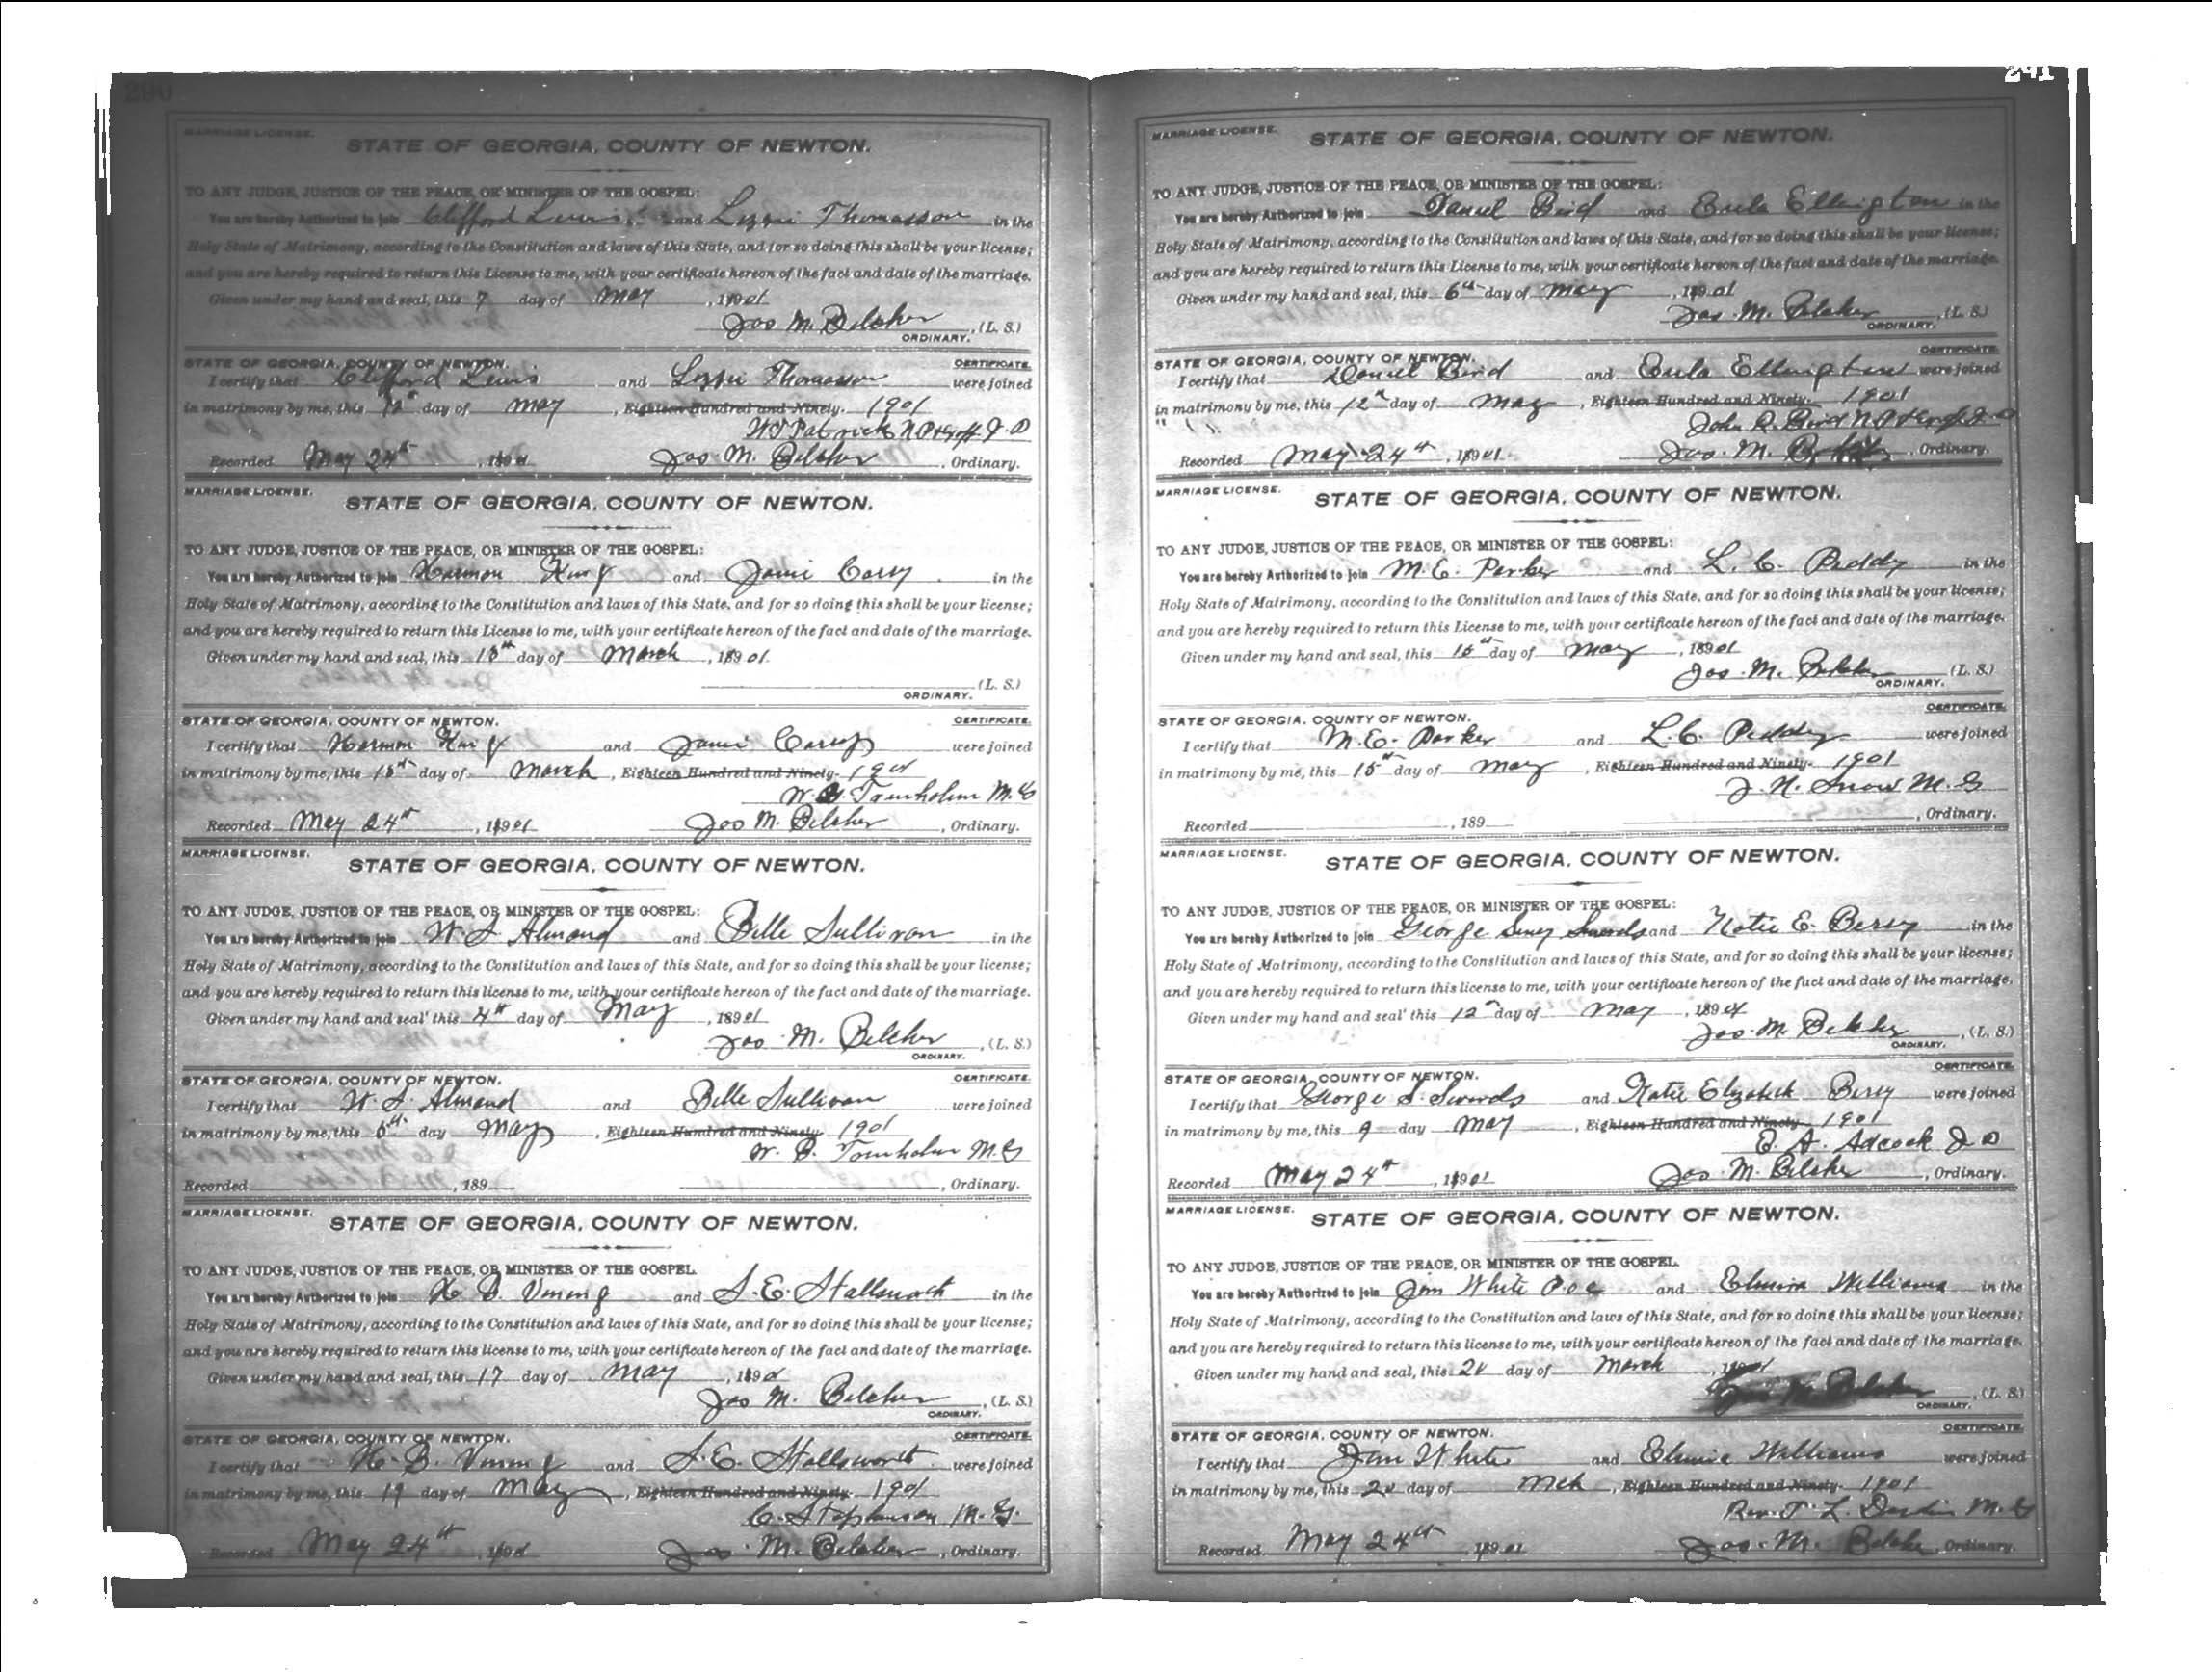 290
MARRIAGE LICENSE.
STATE OF GEORGIA, COUNTY OF NEWTON.
TO ANY JUDGE, JUSTICE OF THE PEACE, OR MINISTER OF THE GOSPEL:
You are hereby Authorized to join Clifford Lewis and Lizzie Thomasson in the
Holy State of Matrimony, according to the Constitution and laws of this State, and for so doing this shall be your license;
and you are hereby required to return this License to me, with your certificate hereon of the fact and date of the marriage.
Given under my hand and seal, this 7 day of May, 1901
Jos M. Belcher, (L. S.)
ORDINARY.
STATE OF GEORGIA, COUNTY OF NEWTON. CERTIFICATE.
I certify that Clifford Lewis and Lizzie Thomasson were joined
in matrimony by me, this 12th day of May, Eighteen Hundred and Ninety- 1901
Patrick N.P.
Recorded May 24th, 1901 Jos. M. Belcher, Ordinary.
MARRIAGE LICENSE.
STATE OF GEORGIA, COUNTY OF NEWTON.
TO ANY JUDGE, JUSTICE OF THE PEACE, OR MINISTER OF THE GOSPEL:
You are hereby Authorized to join Harmon King and Janie in the
Holy State of Matrimony, according to the Constitution and laws of this State, and for so doing this shall be your license;
and you are hereby required to return this License to me, with your certificate hereon of the fact and date of the marriage.
Given under my hand and seal, this day of March, 1901.
(L. S.)
ORDINARY.
STATE OF GEORGIA, COUNTY OF NEWTON. CERTIFICATE.
I certify that Harmon King and Janie were joined
in matrimony by me, this day of March, Eighteen Hundred and Ninety- 1901
W. M.G
Recorded May 24th, 1901 Jos M. Belcher, Ordinary.
MARRIAGE LICENSE.
STATE OF GEORGIA, COUNTY OF NEWTON.
TO ANY JUDGE, JUSTICE OF THE PEACE, OR MINISTER OF THE GOSPEL:
You are hereby Authorized to join W. S. Almand and Belle Sullivan in the
Holy State of Matrimony, according to the Constitution and laws of this State, and for so doing this shall be your license;
and you are hereby required to return this license to me, with your certificate hereon of the fact and date of the marriage.
Given under my hand and seal' this 4th day of May, 18901
Jos M. Belcher, (L. S.)
ORDINARY.
STATE OF GEORGIA, COUNTY OF NEWTON. CERTIFICATE.
I certify that W. S. Almand and Belle Sullivan were joined
in matrimony by me, this day May, Eighteen Hundred and Ninety 1901
W. M.G
Recorded , 189 , Ordinary.
MARRIAGE LICENSE.
STATE OF GEORGIA, COUNTY OF NEWTON.
TO ANY JUDGE, JUSTICE OF THE PEACE, OR MINISTER OF THE GOSPEL.
You are hereby Authorized to join H. B. and S. E. Stallsworth in the
Holy State of Matrimony, according to the Constitution and laws of this State, and for so doing this shall be your license;
and you are hereby required to return this license to me, with your certificate hereon of the fact and date of the marriage.
Given under my hand and seal, this 17 day of May, 1901
Jos M. Belcher, (L. S.)
ORDINARY.
STATE OF GEORGIA, COUNTY OF NEWTON. CERTIFICATE.
I certify that H. B. and S. E. Stallsworth were joined
in matrimony by me, this 19 day of May, Eighteen Hundred and Ninety- 1901
C. Stephenson M. G.
Recorded May 24th, 1901 Jos. M. Belcher, Ordinary.
241
MARRIAGE LICENSE.
STATE OF GEORGIA, COUNTY OF NEWTON.
TO ANY JUDGE, JUSTICE OF THE PEACE, OR MINISTER OF THE GOSPEL:
You are hereby Authorized to join Daniel Bird and Eula Ellington in the
Holy State of Matrimony, according to the Constitution and laws of this State, and for so doing this shall be your license;
and you are hereby required to return this License to me, with your certificate hereon of the fact and date of the marriage.
Given under my hand and seal, this 6th day of May, 1901
Jos. M. Belcher, (L. S.)
ORDINARY.
STATE OF GEORGIA, COUNTY OF NEWTON. CERTIFICATE.
I certify that Daniel Bird and Eula Ellington were joined
in matrimony by me, this 12th day of May, Eighteen Hundred and Ninety- 1901
John R. Bird N.P.
Recorded May 24th, 1901. Jos. M. Belcher, Ordinary.
MARRIAGE LICENSE.
STATE OF GEORGIA, COUNTY OF NEWTON.
TO ANY JUDGE, JUSTICE OF THE PEACE, OR MINISTER OF THE GOSPEL:
You are hereby Authorized to join M. E. Parker and L. C. Peddy in the
Holy State of Matrimony, according to the Constitution and laws of this State, and for so doing this shall be your license;
and you are hereby required to return this License to me, with your certificate hereon of the fact and date of the marriage.
Given under my hand and seal, this 15th day of May, 18901
Jos. M. Belcher (L. S.)
ORDINARY.
STATE OF GEORGIA, COUNTY OF NEWTON. CERTIFICATE.
I certify that M. E. Parker and L. C. Peddy were joined
in matrimony by me, this 15th day of May, Eighteen Hundred and Ninety- 1901
J. N. Snow M. G
Recorded , 189 , Ordinary.
MARRIAGE LICENSE.
STATE OF GEORGIA, COUNTY OF NEWTON.
TO ANY JUDGE, JUSTICE OF THE PEACE, OR MINISTER OF THE GOSPEL:
You are hereby Authorized to join George Swords and Katie E. in the
Holy State of Matrimony, according to the Constitution and laws of this State, and for so doing this shall be your license;
and you are hereby required to return this license to me, with your certificate hereon of the fact and date of the marriage.
Given under my hand and seal' this 12 day of May, 18901
Jos. M Belcher, (L. S.)
ORDINARY.
STATE OF GEORGIA, COUNTY OF NEWTON. CERTIFICATE.
I certify that George S. Swords and Katie Elizabeth were joined
in matrimony by me, this 9 day May, Eighteen Hundred and Ninety- 1901
E. A. Adcock J P
Recorded May 24th, 1901 Jos. M. Belcher, Ordinary.
MARRIAGE LICENSE.
STATE OF GEORGIA, COUNTY OF NEWTON.
TO ANY JUDGE, JUSTICE OF THE PEACE, OR MINISTER OF THE GOSPEL.
You are hereby Authorized to join Jim White and Elmira Williams in the
Holy State of Matrimony, according to the Constitution and laws of this State, and for so doing this shall be your license;
and you are hereby required to return this license to me, with your certificate hereon of the fact and date of the marriage.
Given under my hand and seal, this day of March, 1901
Belcher, (L. S.)
ORDINARY.
STATE OF GEORGIA, COUNTY OF NEWTON. CERTIFICATE.
I certify that Jim White and Williams were joined
in matrimony by me, this day of Mch, Eighteen Hundred and Ninety- 1901
Rev. T. L. M.G
Recorded May 24th, 18901 Jos. M. Belcher, Ordinary.